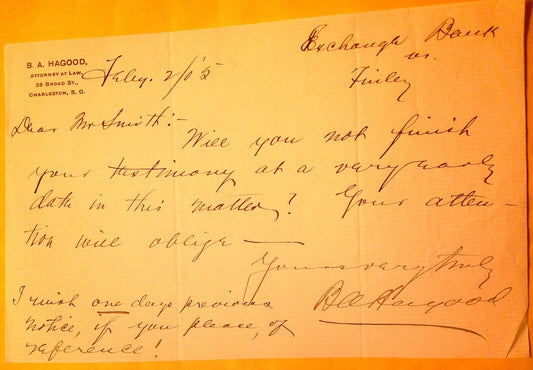 B. A. HAGOOD,
ATTORNEY AT LAW,
39 BROAD ST.,
CHARLESTON, S. C.
Feby. 2/05
Exchange Bank
vs.
Finley
Dear Mr Smith:-
Will you not finish
your testimony at a very early
date in this matter? Your atten-
tion will oblige —
Yours very truly
B A Hagood
I wish one days previous
notice, if you please, of
reference!